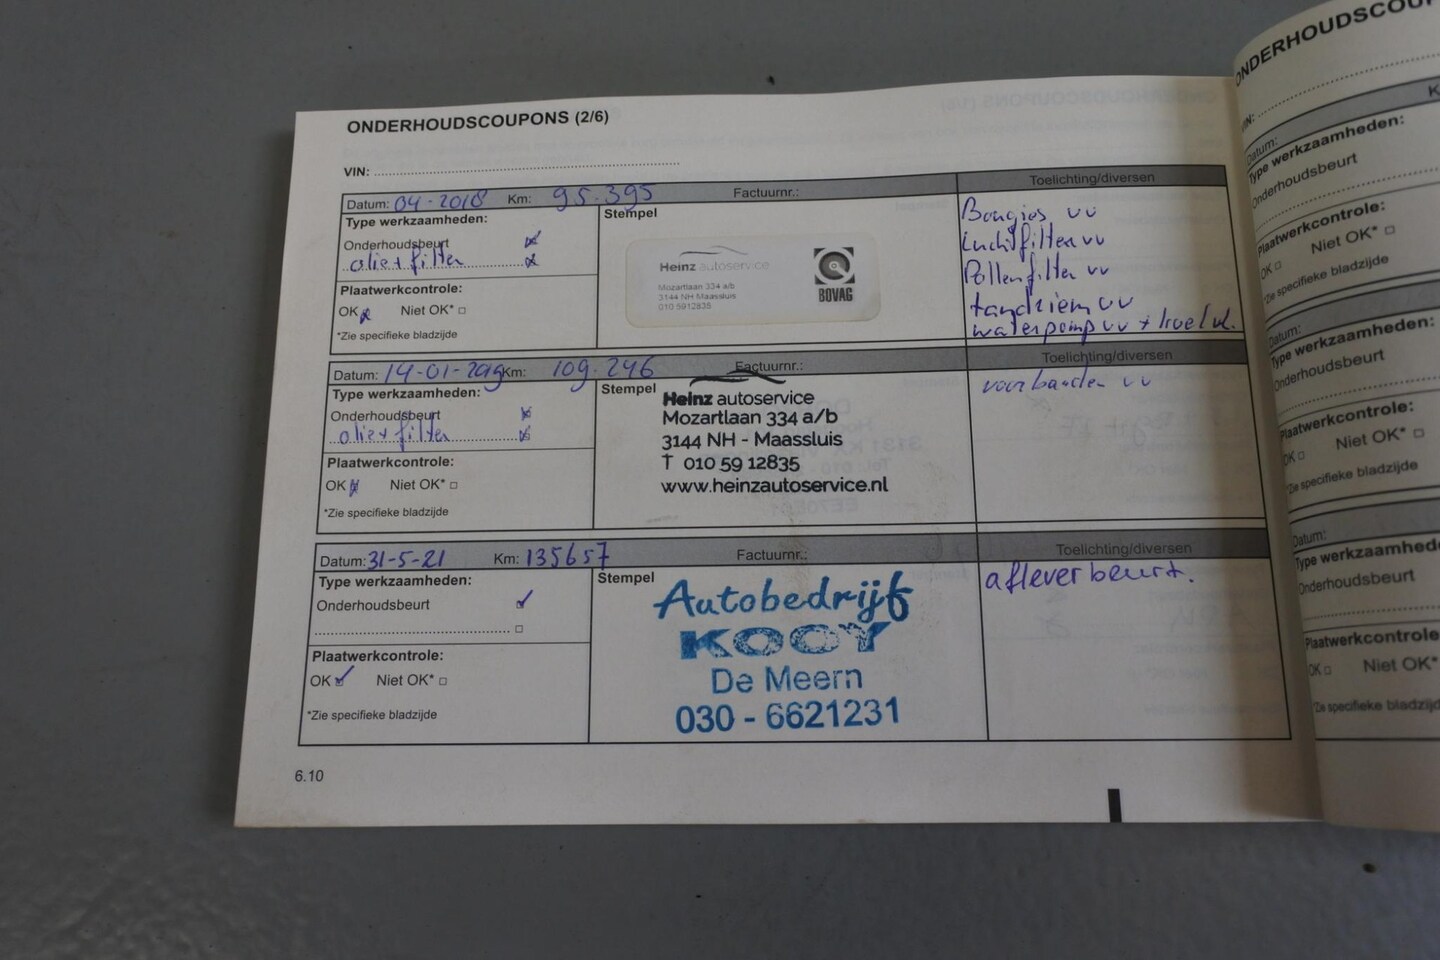 ONDERHOUDSCOUPONS (2/6)
VIN:
Datum: 04-2018 Km: 95.395 Factuurnr.: Toelichting/diversen
Type werkzaamheden:
Onderhoudsbeurt
olie + filter
Plaatwerkcontrole:
OK Niet OK*
*Zie specifieke bladzijde
Stempel
Heinz autoservice
Mozartlaan 334 a/b
3144 NH Maassluis
010 5912835
BOVAG
Bougies vv
Luchtfilter vv
Pollenfilter vv
tandriem vv
waterpomp vv + koelvl.
Datum: 14-01-2019 Km: 109.246 Factuurnr.: Toelichting/diversen
Type werkzaamheden:
Onderhoudsbeurt
olie + filter
Plaatwerkcontrole:
OK Niet OK*
*Zie specifieke bladzijde
Stempel
Heinz autoservice
Mozartlaan 334 a/b
3144 NH - Maassluis
T 010 59 12835
www.heinzautoservice.nl
voorbanden vv
Datum: 31-5-21 Km: 135657 Factuurnr.: Toelichting/diversen
Type werkzaamheden:
Onderhoudsbeurt
Plaatwerkcontrole:
OK Niet OK*
*Zie specifieke bladzijde
Stempel
Autobedrijf
KOOY
De Meern
030 - 6621231
afleverbeurt.
6.10
ONDERHOUDSCOU
VIN:
Datum: K
Type werkzaamheden:
Onderhoudsbeurt
Plaatwerkcontrole:
OK Niet OK*
*Zie specifieke bladzijde
Datum:
Type werkzaamheden:
Onderhoudsbeurt
Plaatwerkcontrole:
OK Niet OK*
*Zie specifieke bladzijde
Datum:
Type werkzaamhede
Onderhoudsbeurt
Plaatwerkcontrole
OK Niet OK*
*Zie specifieke bladzijd